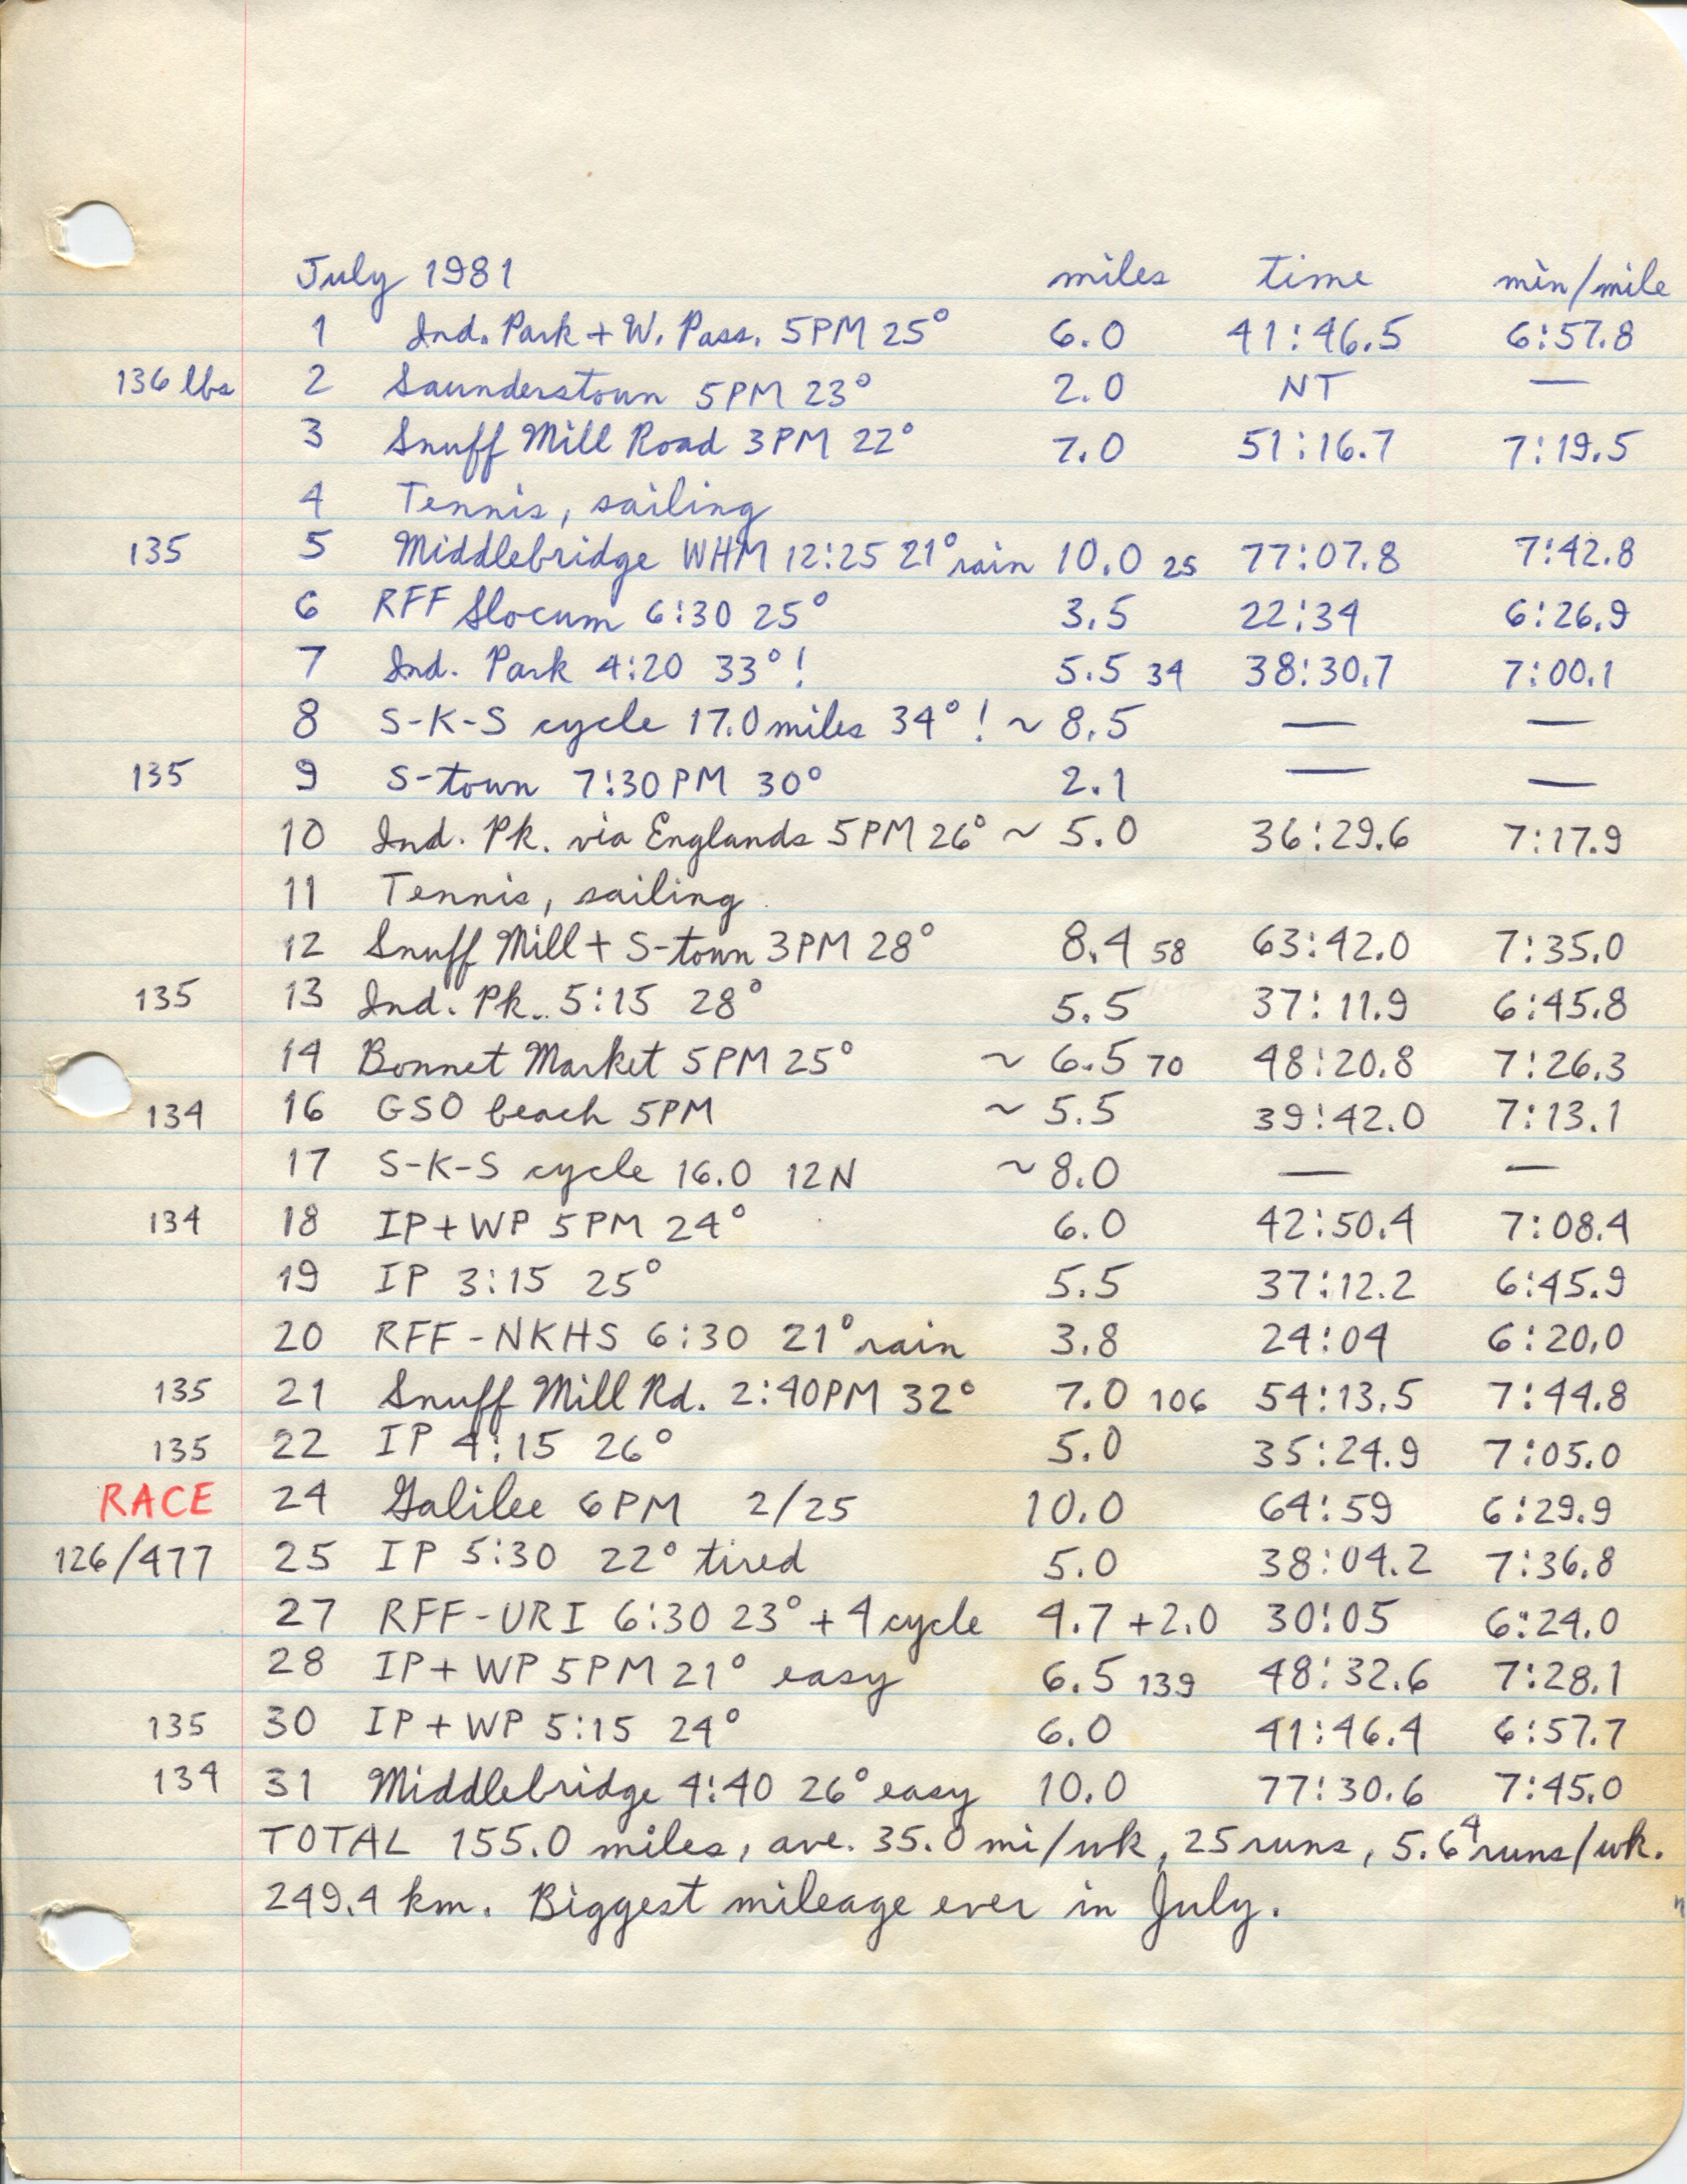 July 1981 miles time min/mile
1 Ind. Park + W. Pass. 5PM 25° 6.0 41:46.5 6:57.8
136 lbs 2 Saunderstown 5PM 23° 2.0 NT —
3 Snuff Mill Road 3PM 22° 7.0 51:16.7 7:19.5
4 Tennis, sailing
135 5 Middlebridge WHM 12:25 21° rain 10.0 25 77:07.8 7:42.8
6 RFF Slocum 6:30 25° 3.5 22:34 6:26.9
7 Ind. Park 4:20 33°! 5.5 34 38:30.7 7:00.1
8 S-K-S cycle 17.0 miles 34°! ~ 8.5 — —
135 9 S-town 7:30PM 30° 2.1 — —
10 Ind. Pk. via Englands 5PM 26° ~ 5.0 36:29.6 7:17.9
11 Tennis, sailing
12 Snuff Mill + S-town 3PM 28° 8.4 58 63:42.0 7:35.0
135 13 Ind. Pk.. 5:15 28° 5.5 37:11.9 6:45.8
14 Bonnet Market 5PM 25° ~ 6.5 70 48:20.8 7:26.3
134 16 GSO beach 5PM ~ 5.5 39:42.0 7:13.1
17 S-K-S cycle 16.0 12N ~ 8.0 — —
134 18 IP + WP 5PM 24° 6.0 42:50.4 7:08.4
19 IP 3:15 25° 5.5 37:12.2 6:45.9
20 RFF - NKHS 6:30 21° rain 3.8 24:04 6:20.0
135 21 Snuff Mill Rd. 2:40PM 32° 7.0 106 54:13.5 7:44.8
135 22 IP 4:15 26° 5.0 35:24.9 7:05.0
RACE 24 Galilee 6PM 2/25 10.0 64:59 6:29.9
126/477 25 IP 5:30 22° tired 5.0 38:04.2 7:36.8
27 RFF - URI 6:30 23° + 4 cycle 4.7 + 2.0 30:05 6:24.0
28 IP + WP 5PM 21° easy 6.5 139 48:32.6 7:28.1
135 30 IP + WP 5:15 24° 6.0 41:46.4 6:57.7
134 31 Middlebridge 4:40 26° easy 10.0 77:30.6 7:45.0
TOTAL 155.0 miles, ave. 35.0 mi/wk, 25 runs, 5.6⁴ runs/wk.
249.4 km. Biggest mileage ever in July.